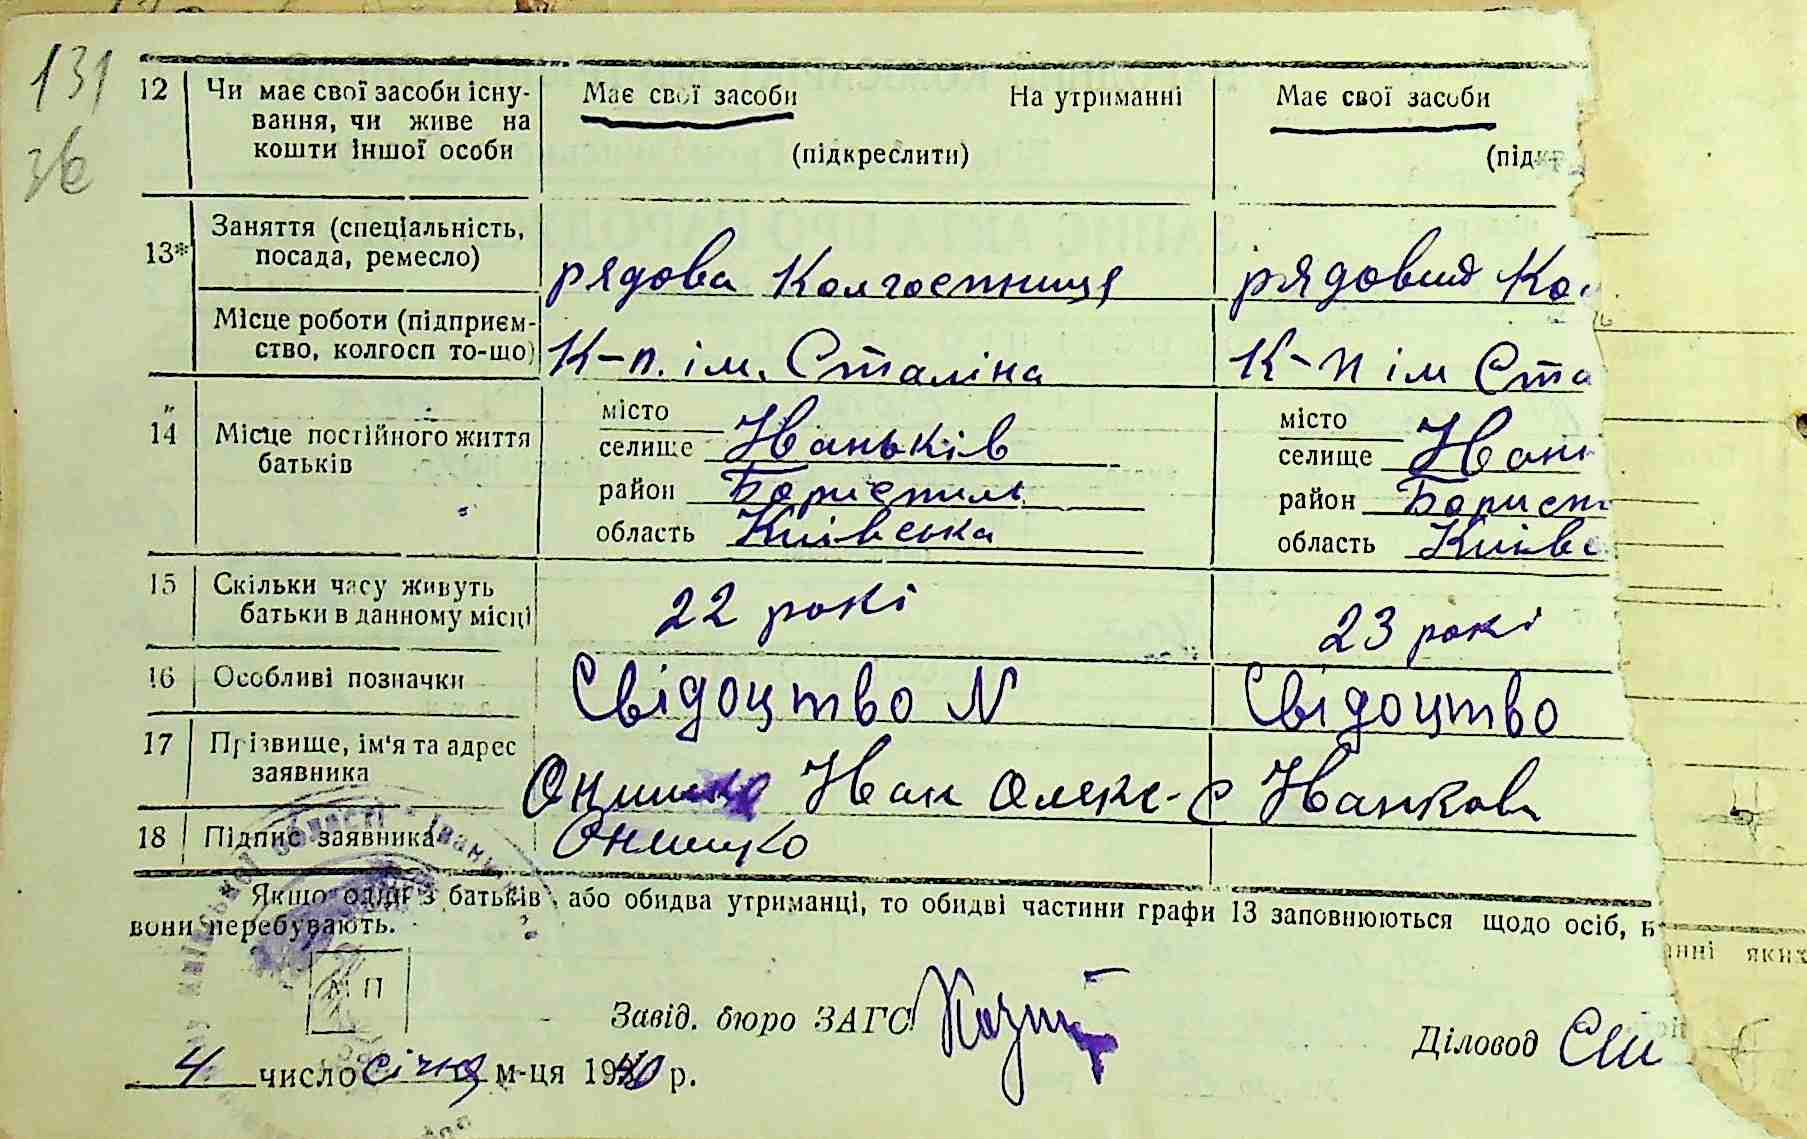 131
зв
12 Чи має свої засоби існу- Має свої засоби На утриманні Має свої засоби
вання, чи живе на
кошти іншої особи (підкреслити) (підкр
13* Заняття (спеціальність,
посада, ремесло) рядова колгоспниця рядовий Кол
Місце роботи (підприєм-
ство, колгосп то-що) К-п. ім. Сталіна К-п ім Ста
14 Місце постійного життя батьків
місто місто
селище Іваньків селище Івань
район Бориспиль район Борисп
область Київська область Київс
15 Скільки часу живуть
батьки в данному місці 22 рокі 23 рокі
16 Особливі позначки Свідоцтво N Свідоцтво
17 Прізвище, ім'я та адрес
заявника Онишко Іван Олекс- с Іванков
18 Підпис заявника Онишко
Якщо один з батьків, або обидва утриманці, то обидві частини графи 13 заповнюються щодо осіб, н
вони перебувають.
анні яких
М П
Завід. бюро ЗАГС
Діловод
4 число січня м-ця 1940 р.